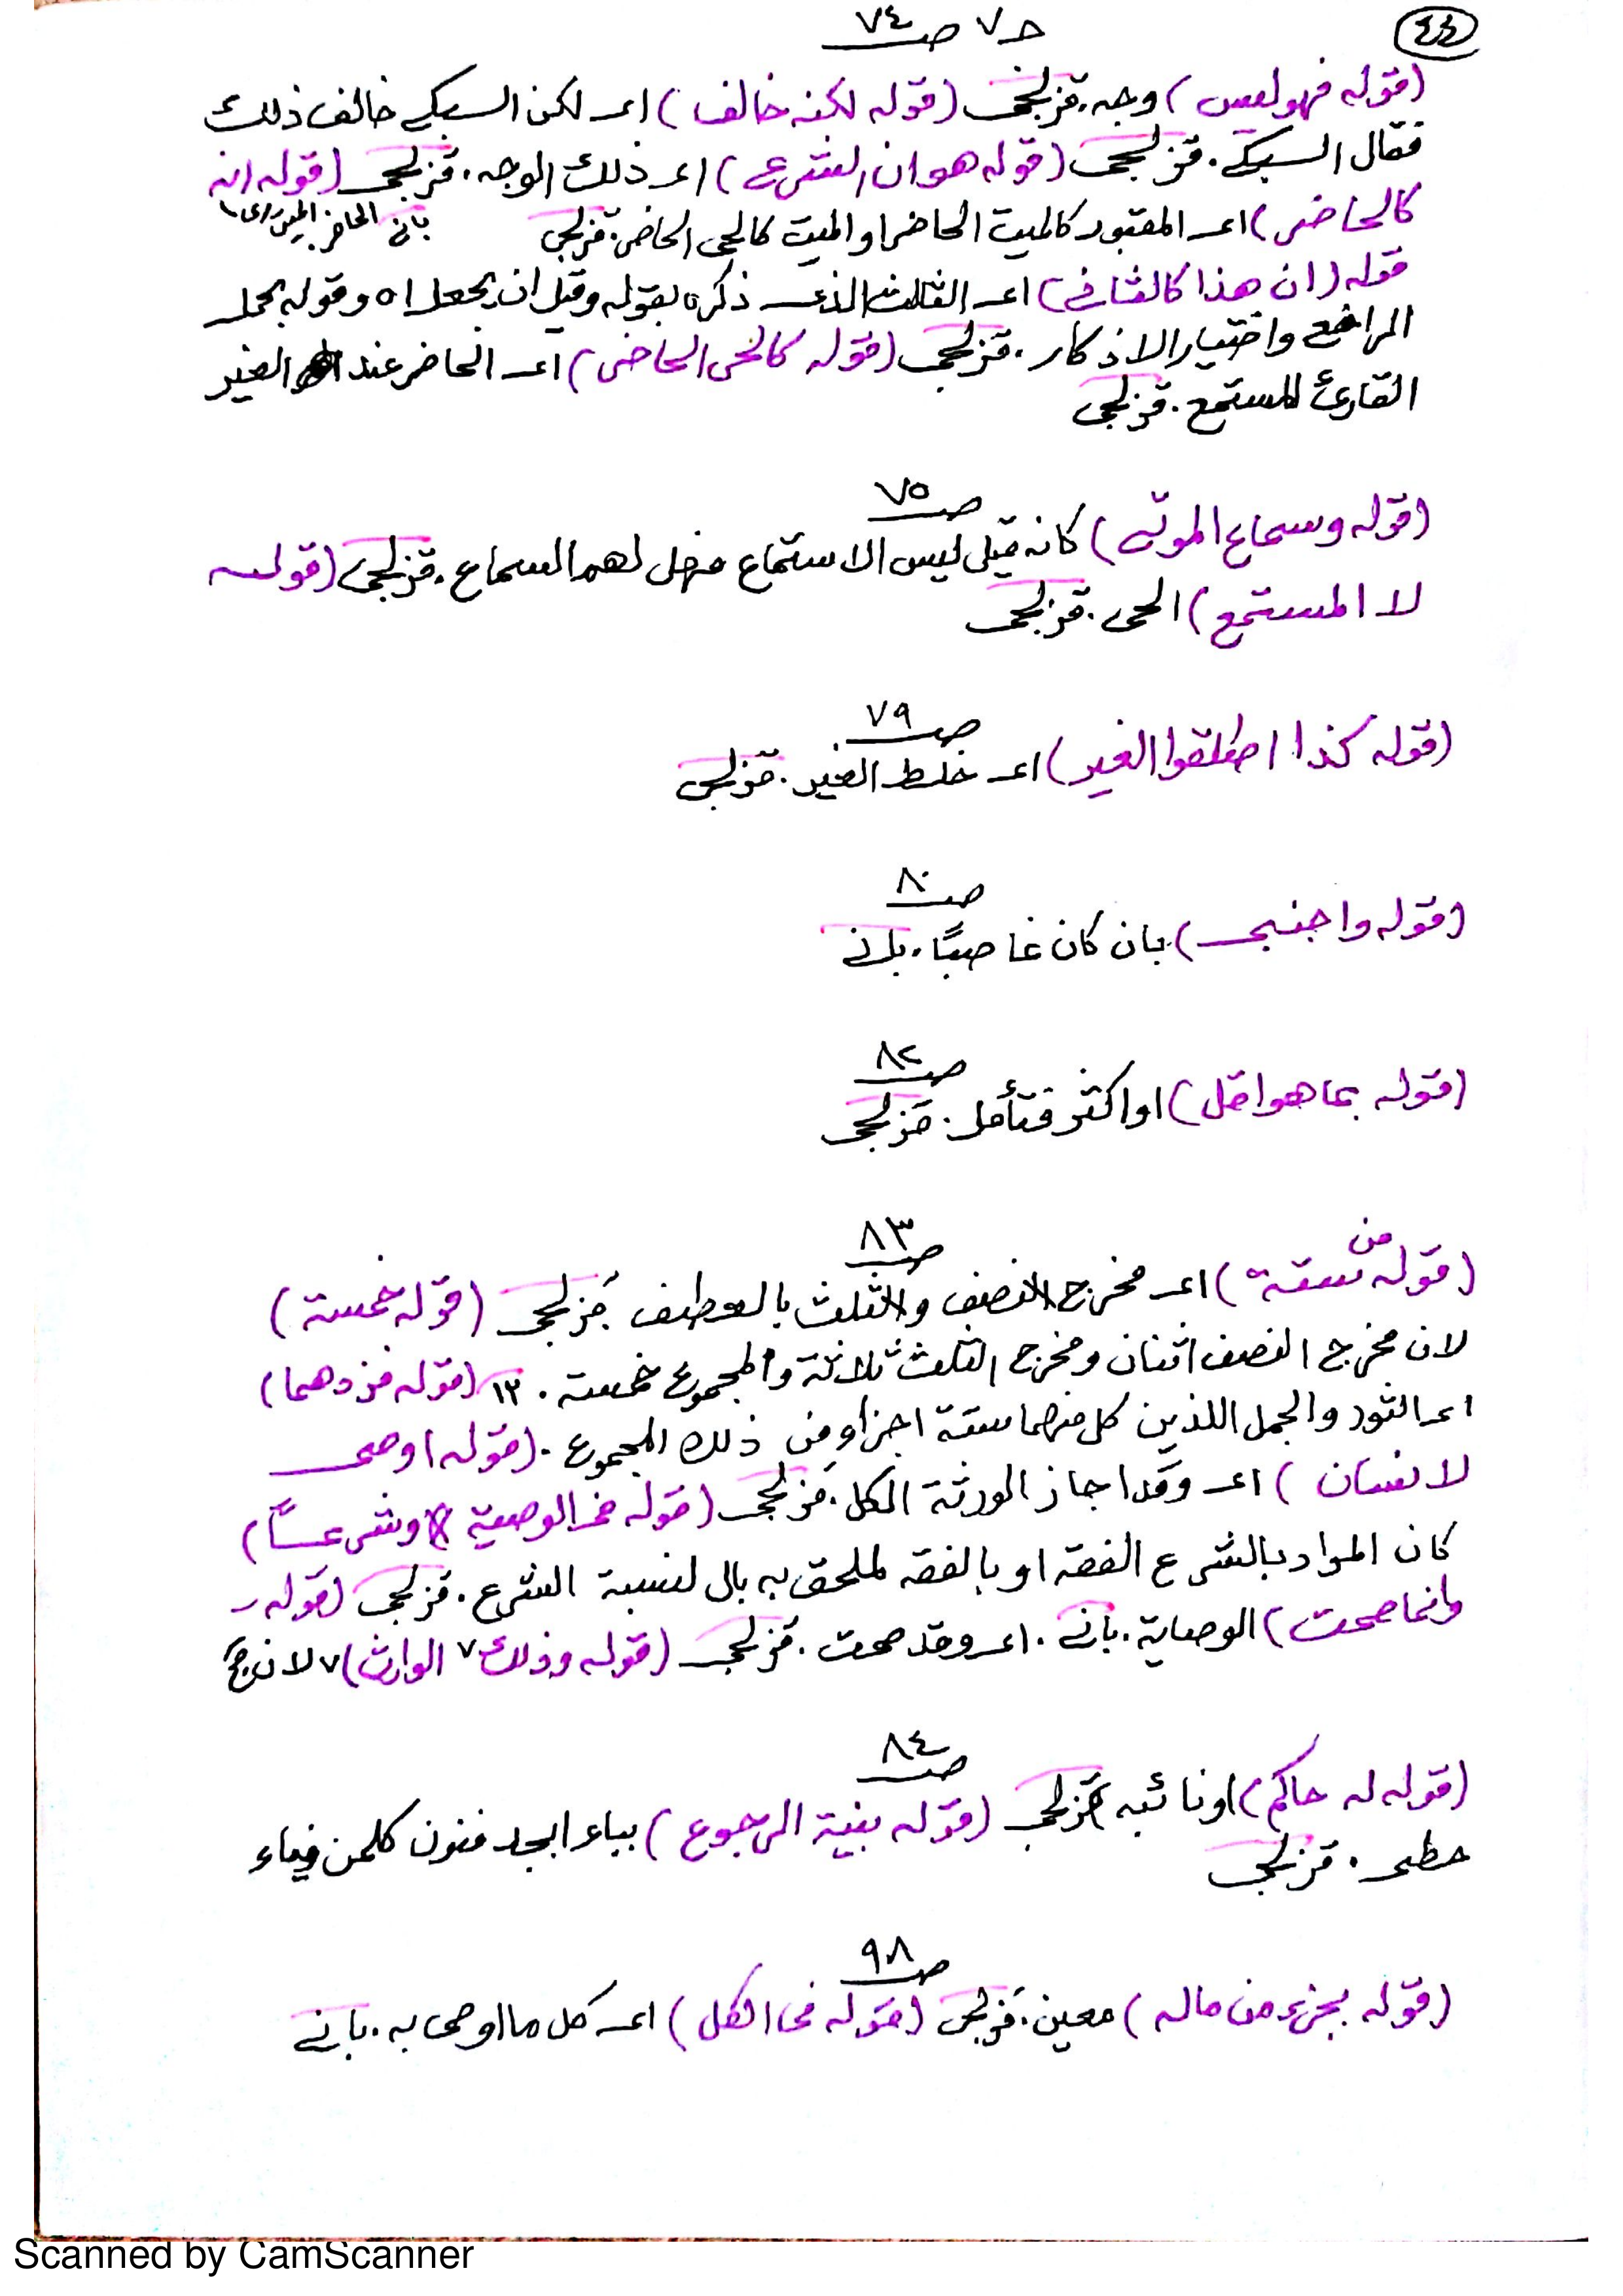 ٤٤
حـ ٧ صـ ٧٤
(قوله فهو ليس) وجه. قزلجى (قوله لكنه خالف) اى لكن السبكي خالف ذلك
فقال السبكي. قزلجى (قوله هو ان الشرع) اى ذلك الوجه. قزلجى (قوله انه
كالحاضر) اى المقبور كالميت الحاضر او الميت كالحى الحاضر. قزلجى
قوله (ان هذا كالثانى) اى الثالث الذى ذكره بقوله وقيل ان يجعل اه وقوله يحمل
الرافعى واختيار الاذكار. قزلجى (قوله كالحى الحاضر) اى الحاضر عند الغير
القارئ المستمع. قزلجى
صـ ٧٥
(قوله وسماع الموتى) كانه قيل ليس الاستماع فهل لهم السماع. قزلجى (قوله
لا المستمع) الحى. قزلجى
صـ ٧٩
(قوله كذا اطلقوا الغير) اى خلط الغير. قزلجى
صـ ٨٠
(قوله واجنبى) بان كان غاصبًا. بانى
صـ ٨٢
(قوله بما هو اقل) او اكثر فتأمل. قزلجى
صـ ٨٣
(قوله من ستة) اى مخرج النصف والثلث بالعطف قزلجى (قوله خمسة)
لان مخرج النصف اثنان ومخرج الثلث ثلاثة والمجموع خمسة. ١٣ (قوله فزدهما)
اى الثور والجمل اللذين كل منهما ستة اجزاء من ذلك المجموع. (قوله اوصى
لانسان) اى وقد اجاز الورثة الكل. قزلجى (قوله فى الوصية وشرعًا)
كان المراد بالشرع الفقه او بالفقه لملحق به بال لنسبة الشرع. قزلجى (قوله
وانما صحت) الوصاية. بانى. اى وقد صحت. قزلجى (قوله وذلك ٧ الوارث) ٧ لان
صـ ٨٤
(قوله له حاكم) او نائبه قزلجى (قوله بنية الرجوع) بباء ابجد فنون كلمن فياء
حطى. قزلجى
صـ ٩٨
(قوله بجزء من ماله) معين. قزلجى (قوله فى الكل) اى كل ما اوصى به. بانى
Scanned by CamScanner